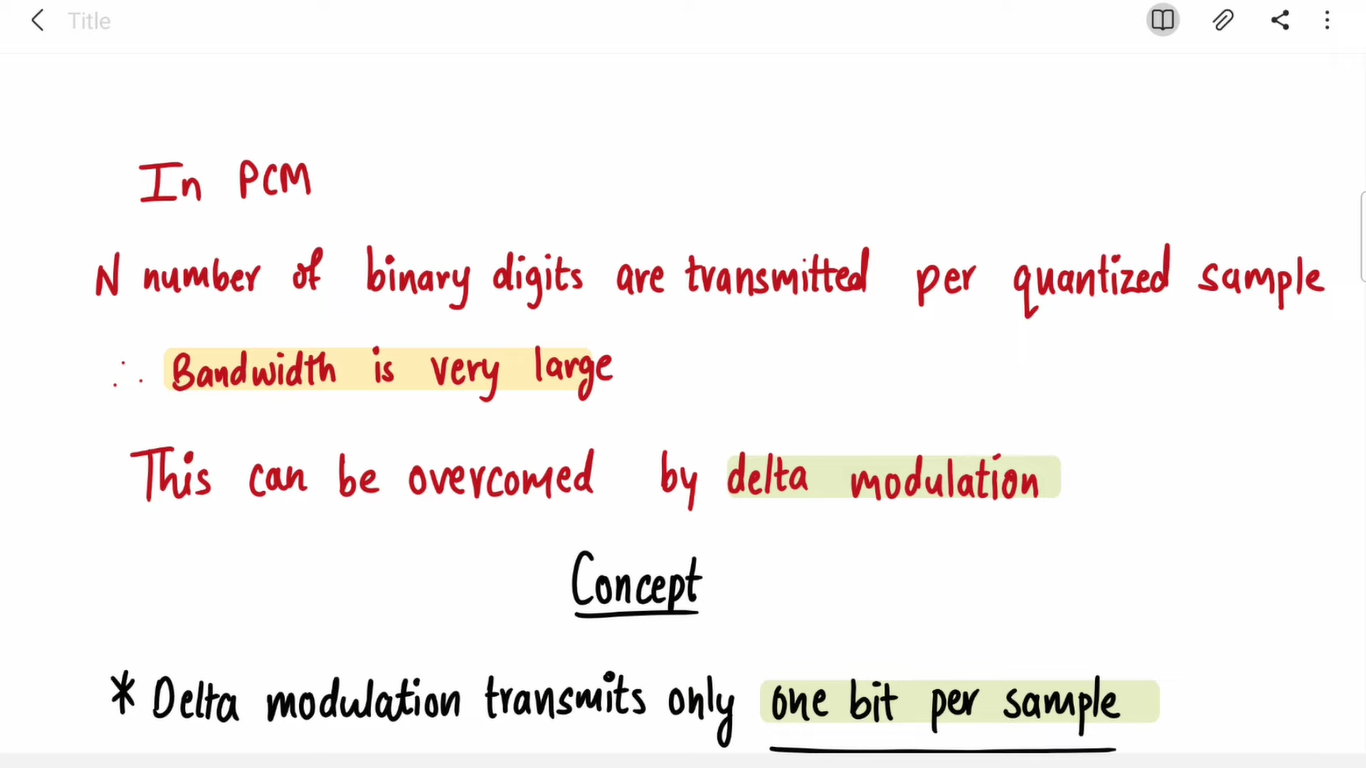 Title
In PCM
N number of binary digits are transmitted per quantized sample
∴ Bandwidth is very large
This can be overcomed by delta modulation
Concept
* Delta modulation transmits only one bit per sample